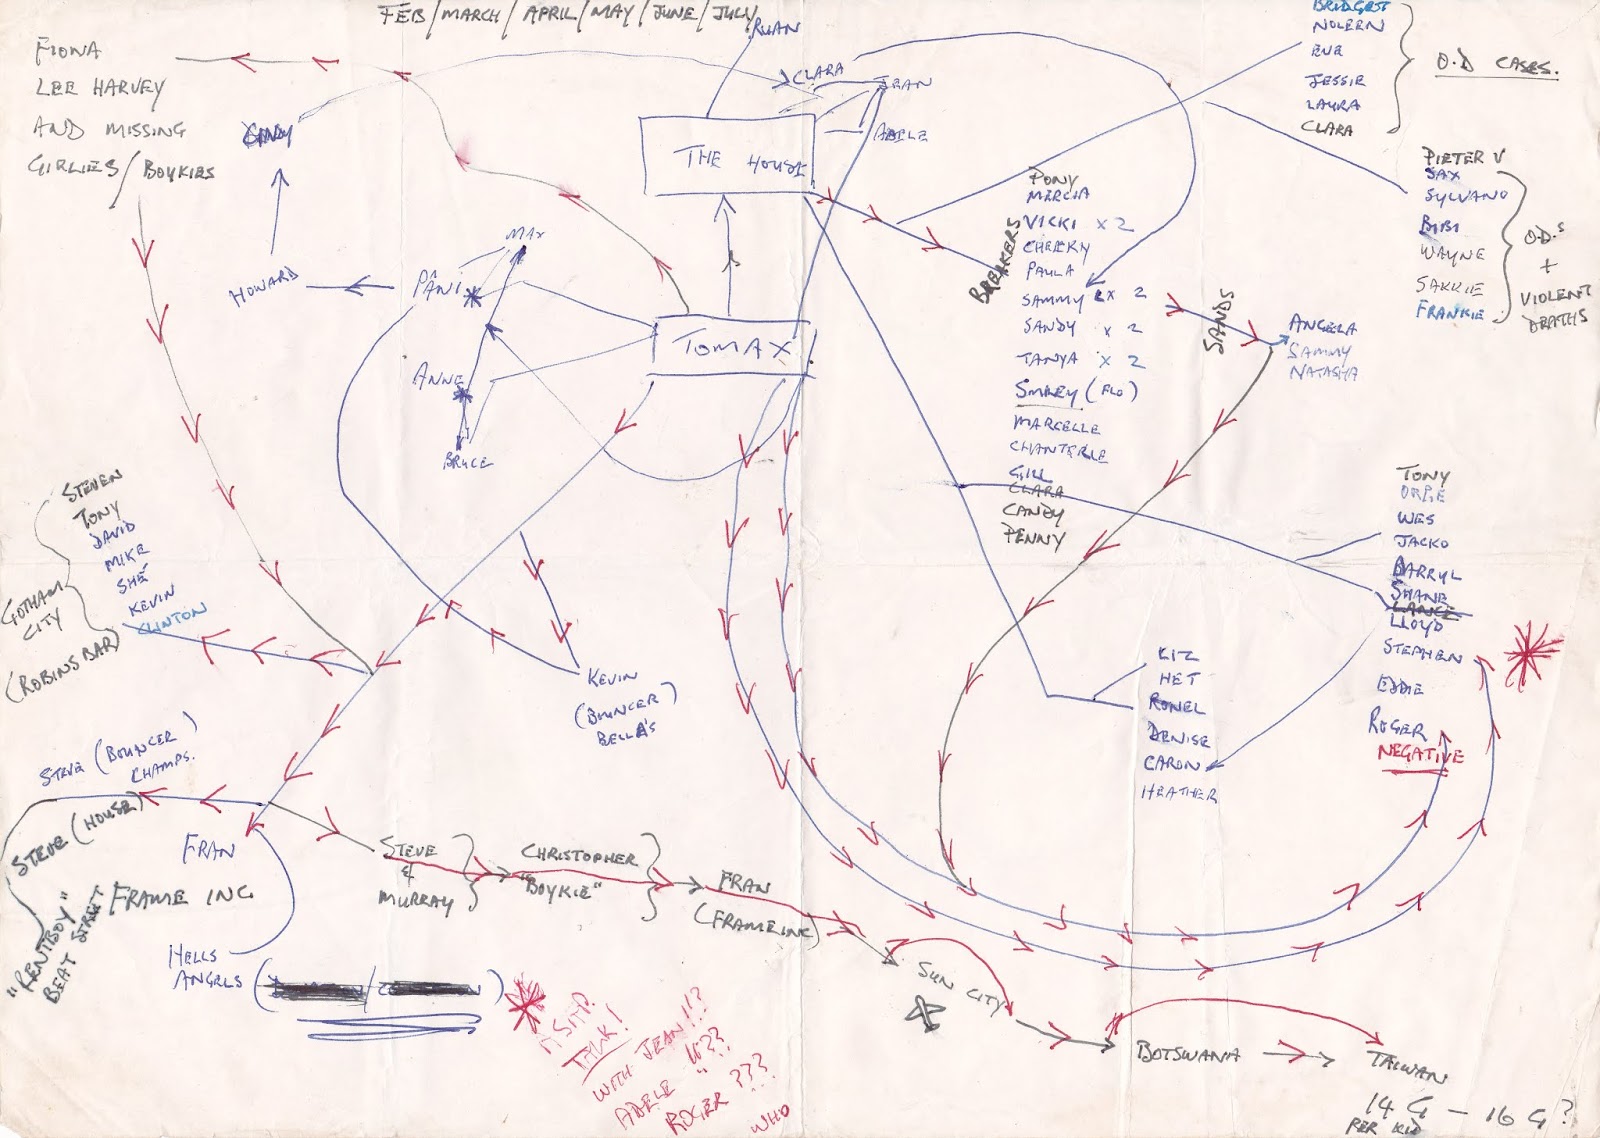 FEB/MARCH/APRIL/MAY/JUNE/JULY
RUAN
FIONA
LEE HARVEY
AND MISSING
GIRLIES/BOYKIES
CLARA
JEAN
ADELE
THE HOUSE
BRIDGET
NOLEEN
EVE
JESSIE
LAURA
CLARA
O.D CASES.
PIETER V
SAX
SYLVANO
BIBI
WAYNE
SAKKIE
FRANKIE
O.D.S
+
VIOLENT
DEATHS
HOWARD
MAX
PÂNI
ANNE
BRUCE
TOMAX
BREAKERS
PONY
MERCIA
VICKI x 2
CHEEKY
PAULA
SAMMY x 2
SANDY x 2
TANYA x 2
SMILEY (FLO)
MARCELLE
CHANTERLE
GILL
CLARA
CANDY
PENNY
SANDS
ANGELA
SAMMY
NATASHA
STEVEN
TONY
DAVID
MIKE
SHÉ
KEVIN
CLINTON
GOTHAM
CITY
(ROBINS BAR)
KEVIN
(BOUNCER)
BELLA'S
TONY
WES
JACKO
DARRYL
SHANE
LANCE
LLOYD
STEPHEN
EDDIE
ROGER
NEGATIVE
LIZ
HET
RONEL
DENISE
CARON
HEATHER
STEVE (BOUNCER)
CHAMPS.
STEVE (HOUSE)
"RENTBOY"
BEAT STREET
FRAN
FRAME INC
HELLS
ANGELS
STEVE
&
MURRAY
CHRISTOPHER
"BOYKIE"
FRAN
(FRAME INC)
SUN CITY
BOTSWANA
TAIWAN
14 G – 16 G?
PER KID
TALK!
WITH JEAN!!?
ADELE " ??
ROGER ???
WHO